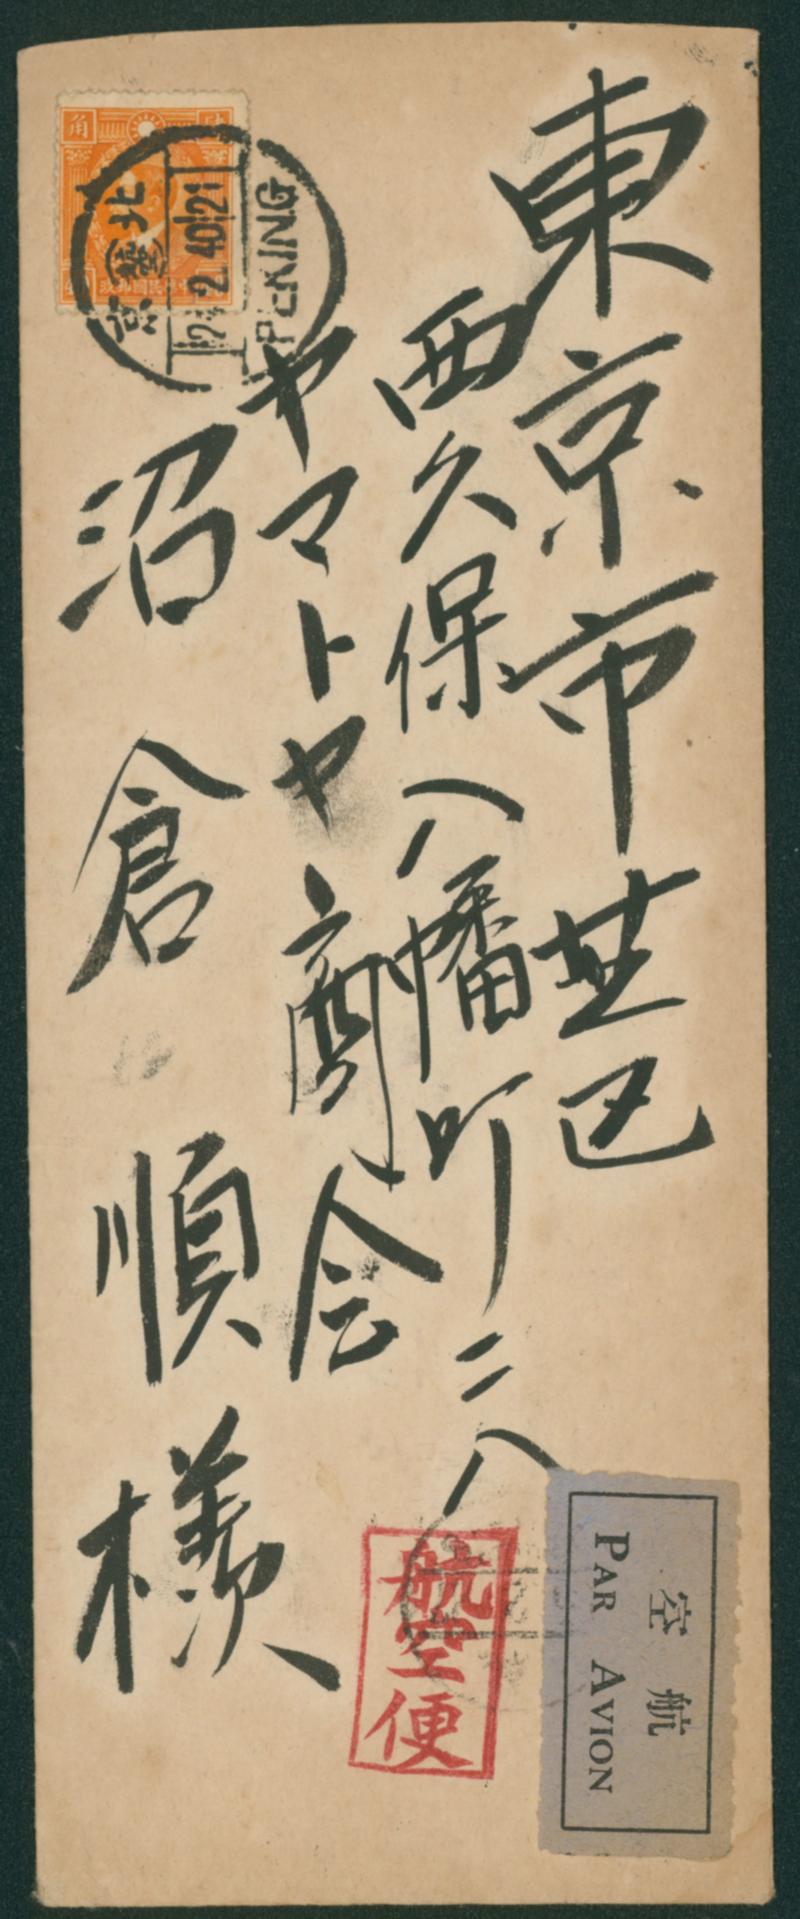 東京市芝区
西久保八幡町二八
ヤマトヤ商会
沼倉順様
角
北京
2.40 21
PEKING
航空便
航空
PAR AVION